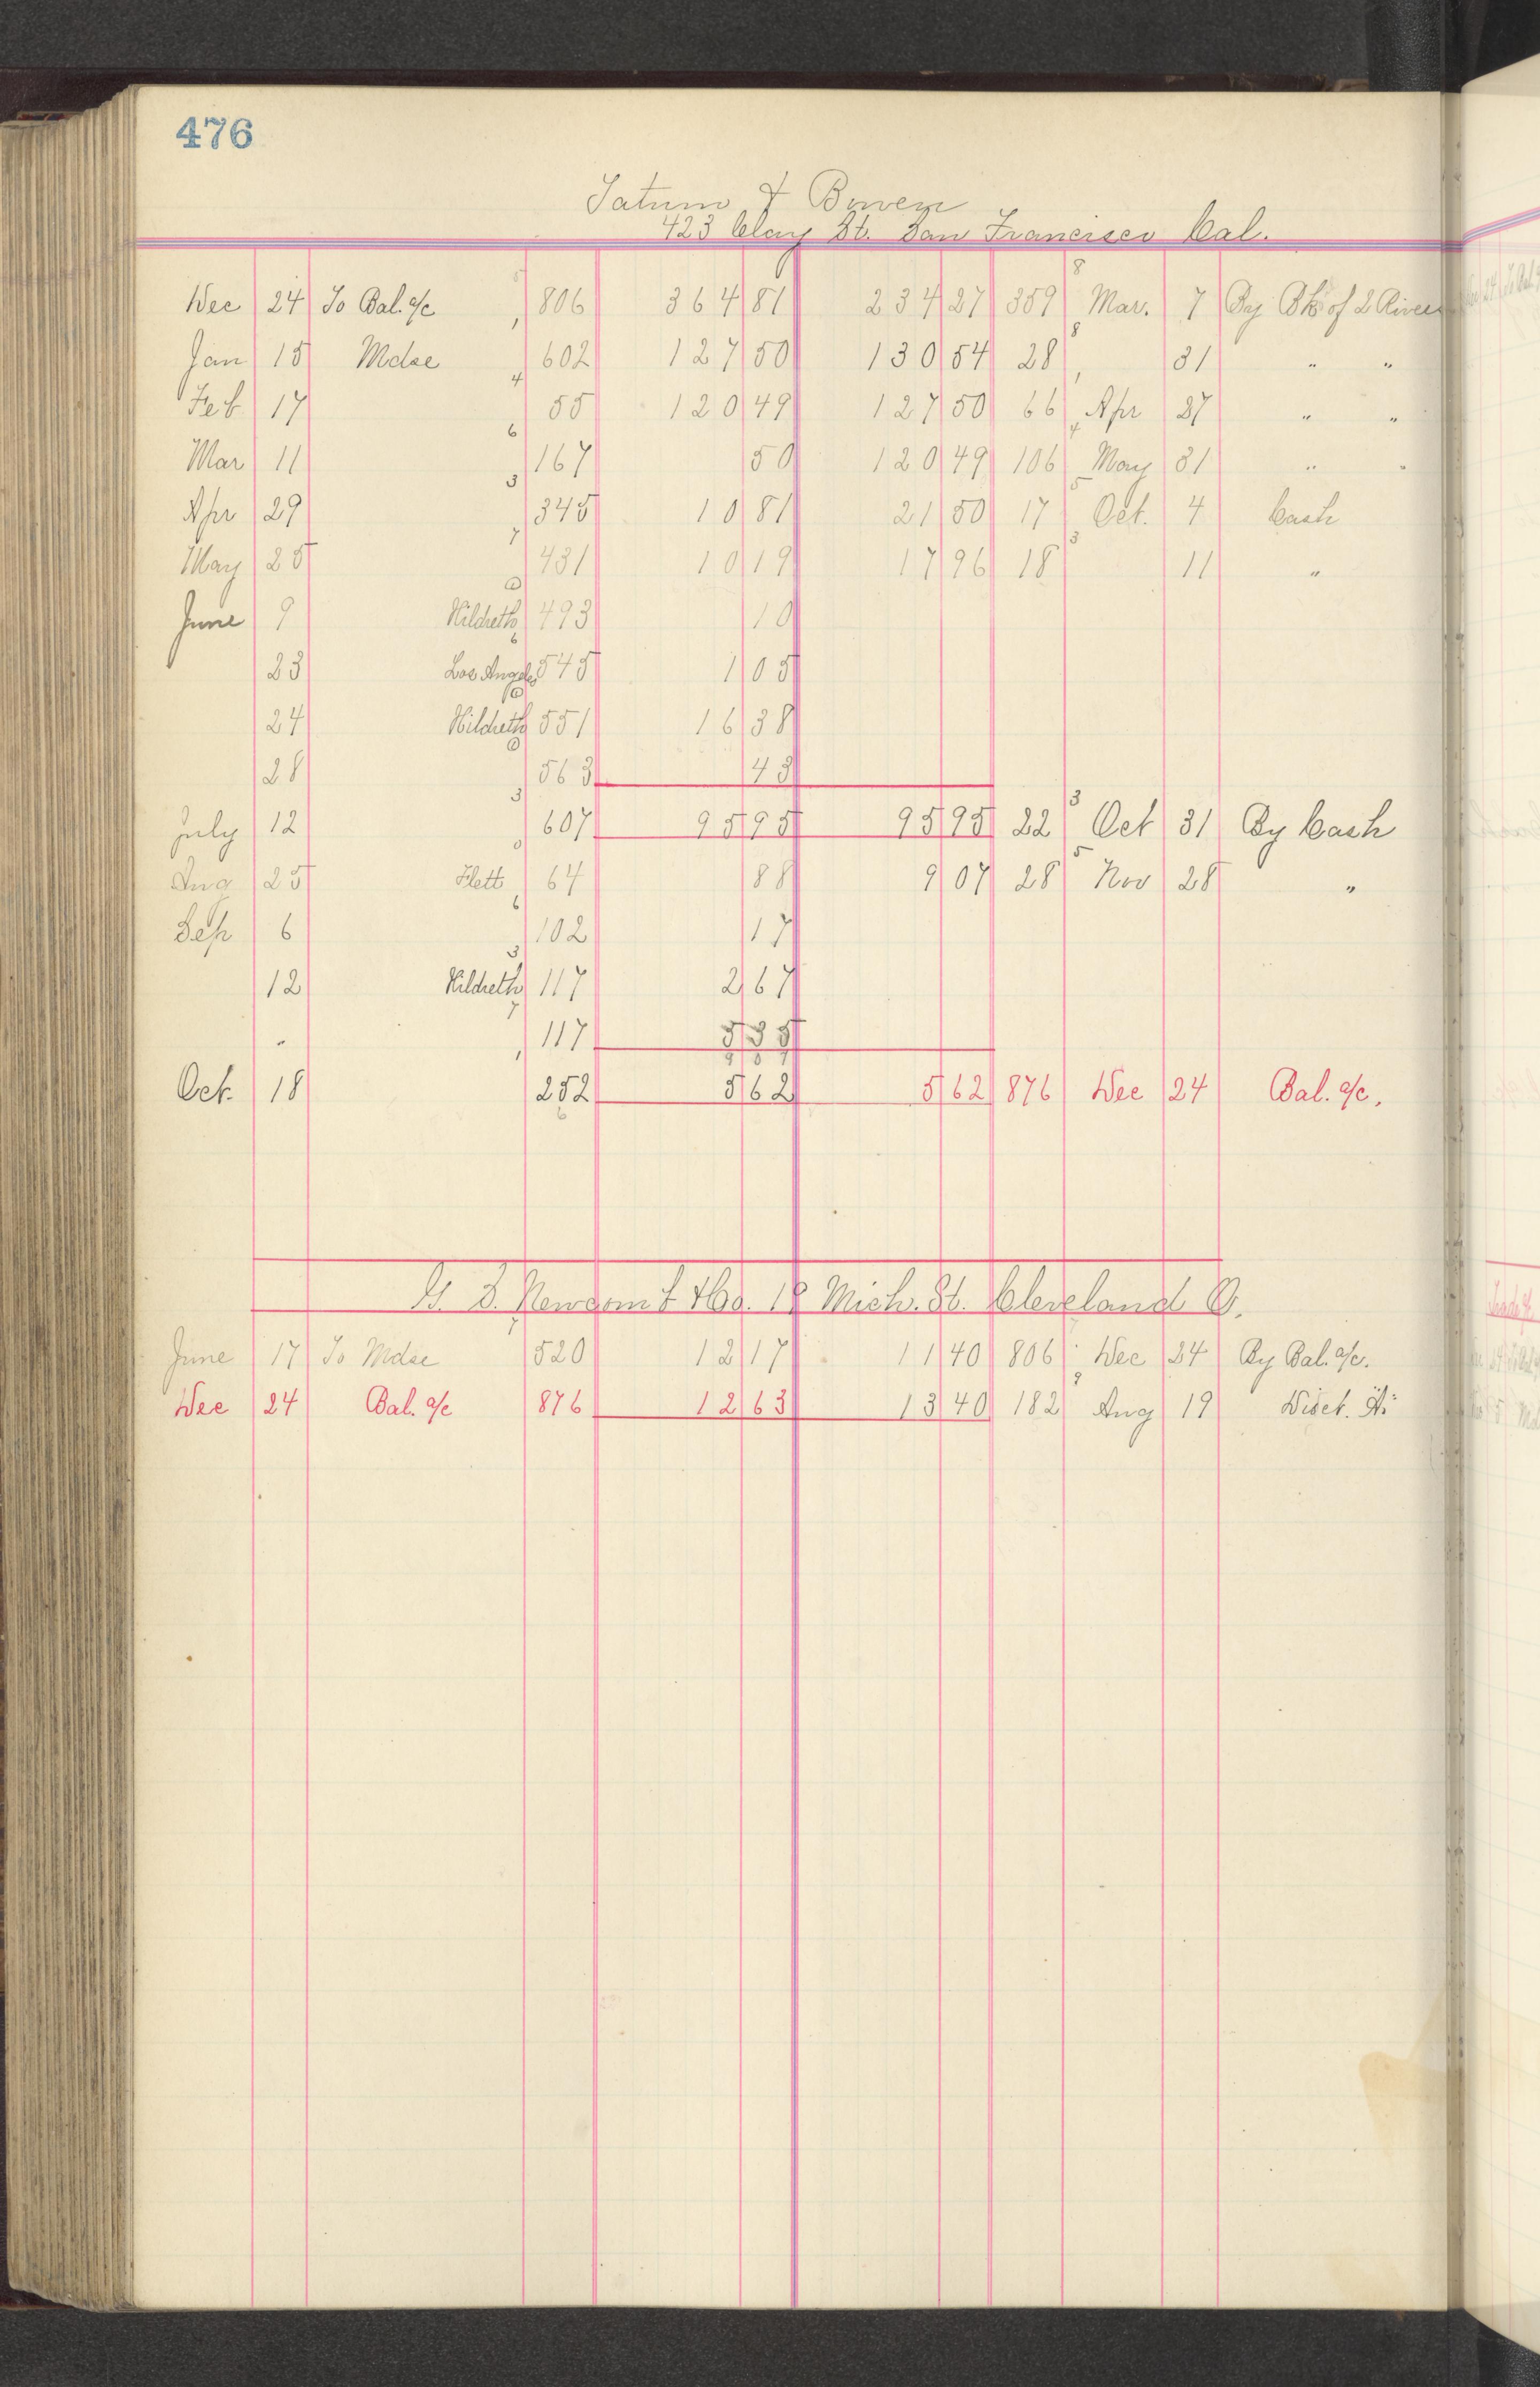 476
Tatum & Bowen
423 Clay St. San Francisco Cal.
Dec 24 To Bal. a/c 806 364 81 234 27 359 Mar. 7 By Bk of 2 Rivers
Jan 15 Mdse 602 127 50 130 54 28 31 " "
Feb 17 55 120 49 127 50 66 Apr 27 " "
Mar 11 167 50 120 49 106 May 31 " "
Apr 29 345 10 81 21 50 17 Oct. 4 Cash
May 25 431 10 19 17 96 18 11 "
June 9 Hildreth 493 10
23 Los Angeles 545 1 05
24 Hildreth 551 16 38
28 563 43
July 12 607 95 95 95 95 22 Oct 31 By Cash
Aug 25 Flett 64 88 9 07 28 Nov 28 "
Sep 6 102 17
12 Hildreth 117 2 67
" 117 5 35
9 07
Oct. 18 252 5 62 5 62 876 Dec 24 Bal. a/c.
Mich. St. Cleveland O.
June 17 To Mdse 520 12 17 11 40 806 Dec 24 By Bal. a/c.
Dec 24 Bal. a/c 876 12 63 13 40 182 Aug 19